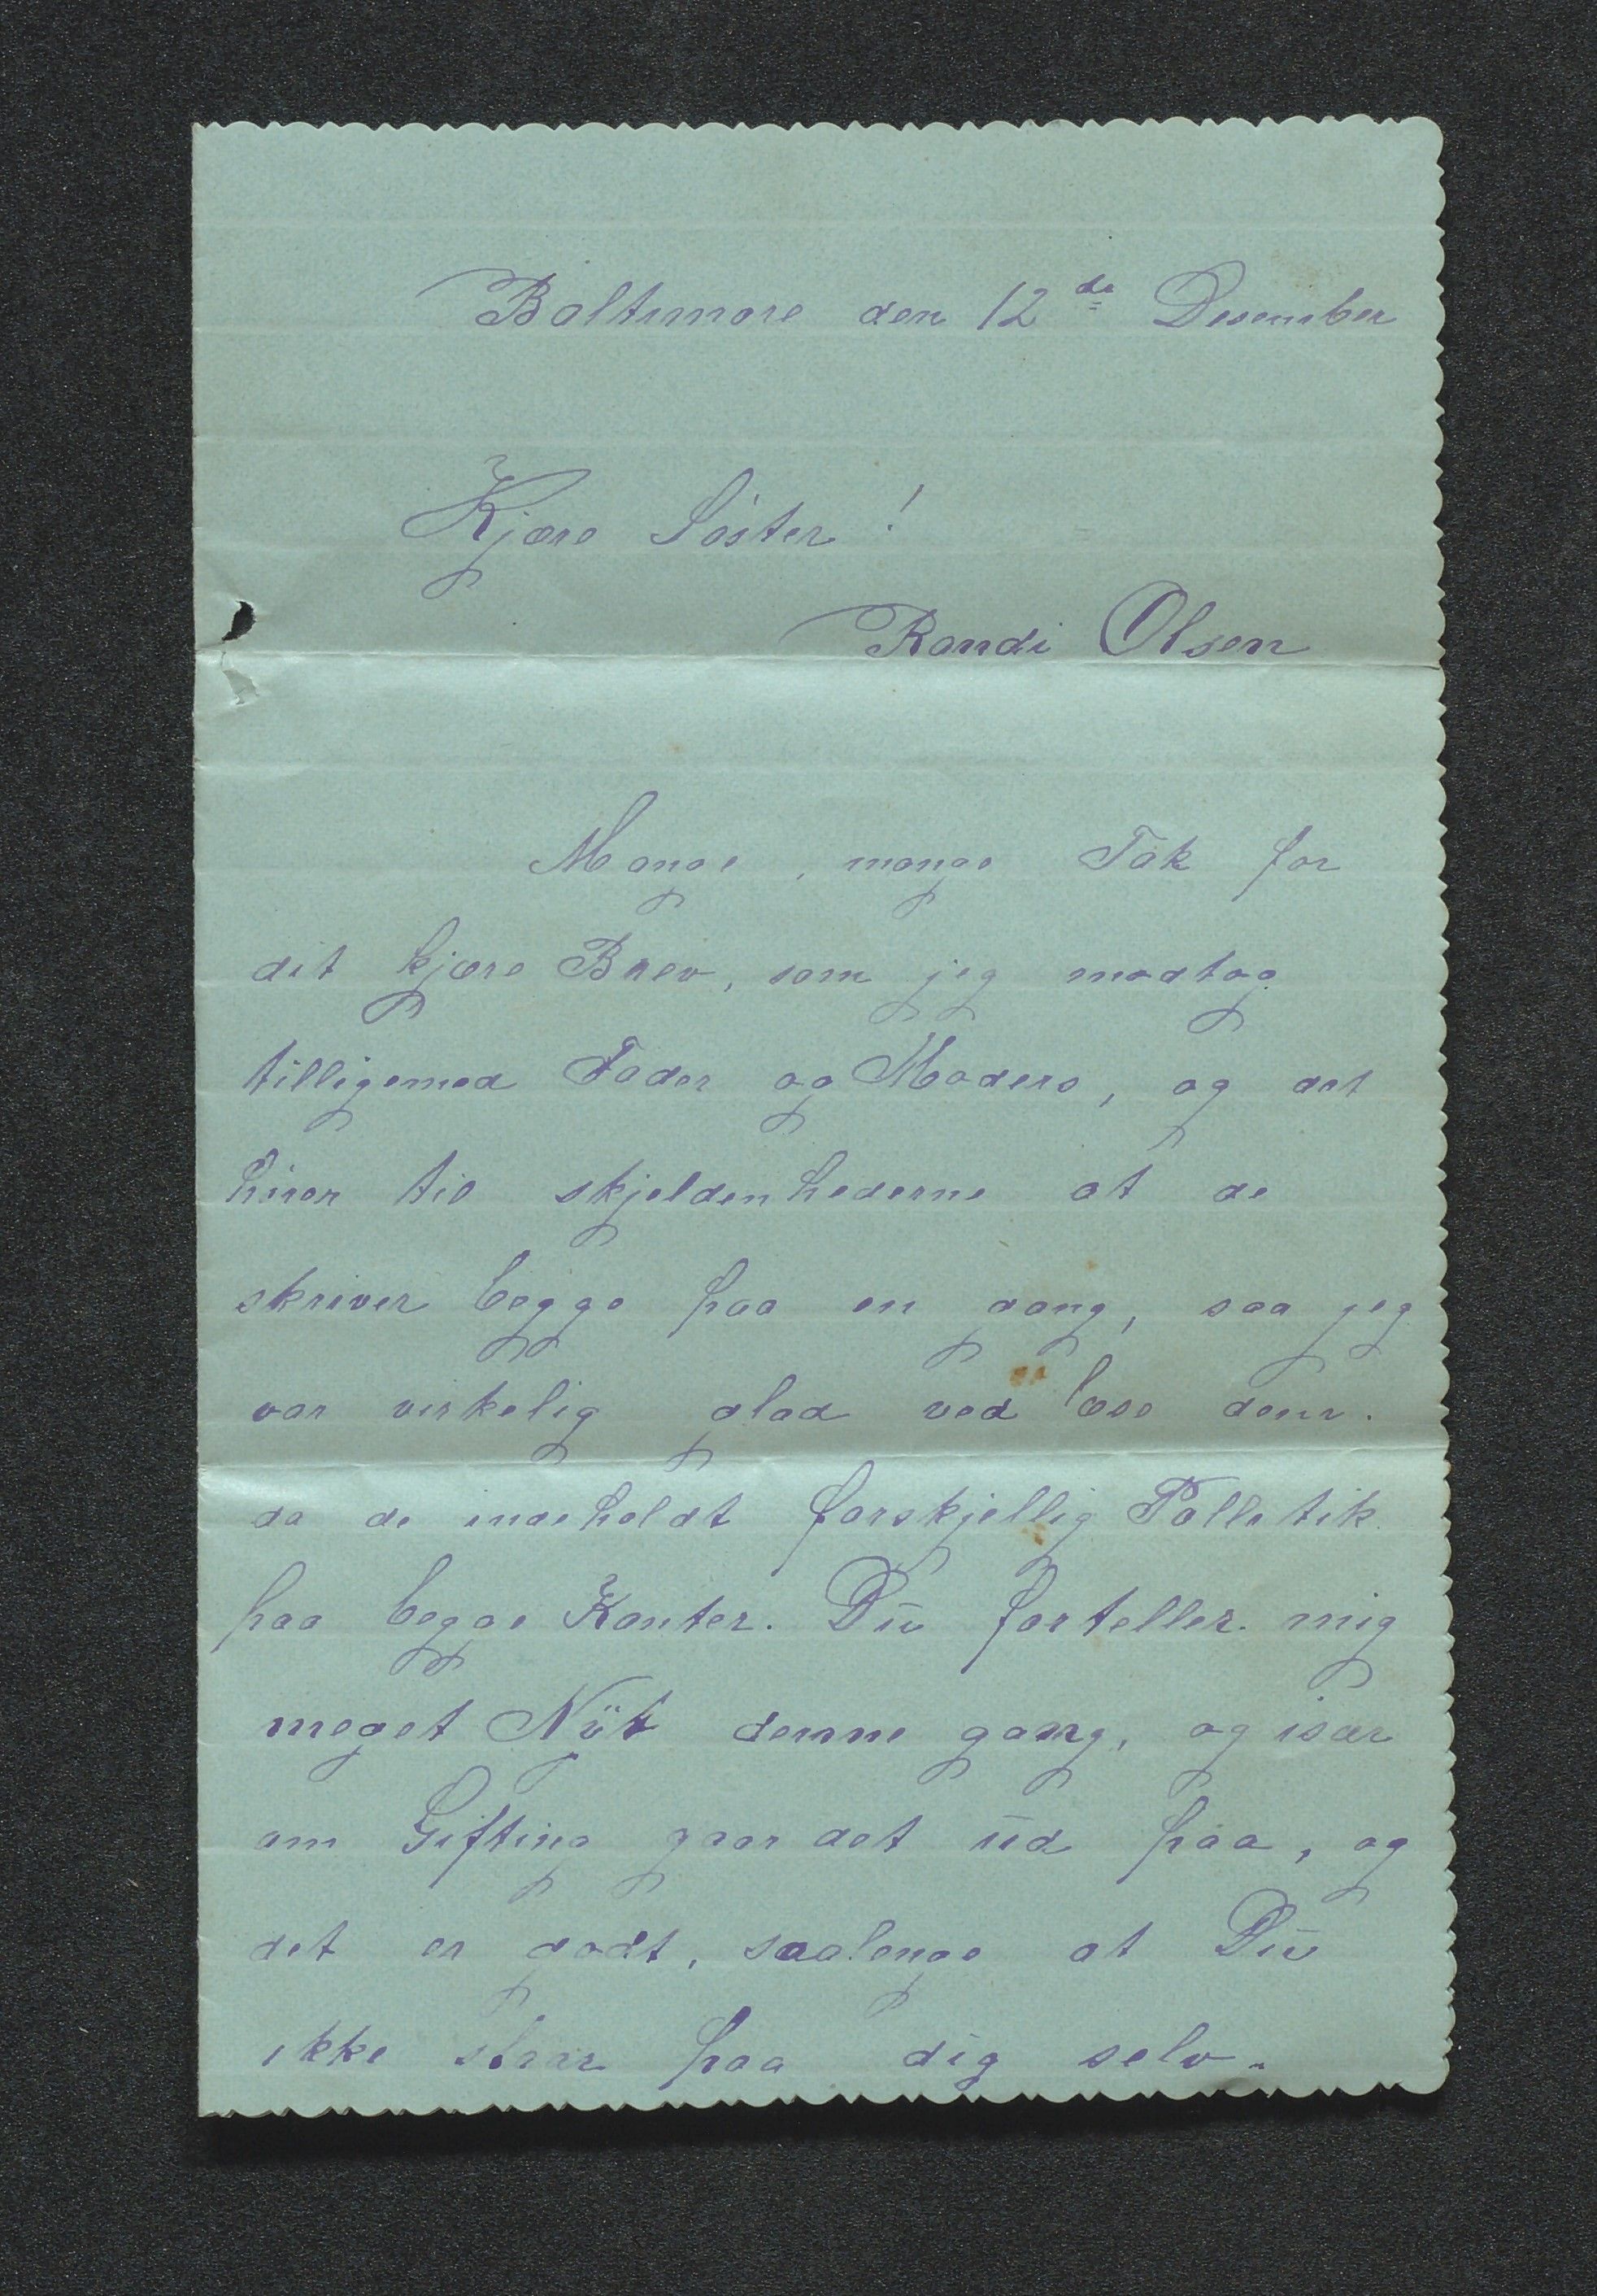 Baltimore den 12de Desember
Kjære Söster!
Randi Olsen
Mange, mange Tak for
dit kjære Brev, som jeg modtog
tilligemed Fader og Moders, og det
hörer til skjeldenhederne at de
skriver begge paa en gang, saa jeg
var virkelig glad ved læse dem.
da de indeholdt forskjellig Polletik
paa begge Kanter. Du forteller mig
meget Nÿt denne gang, og især
om Gifting gaar det ud paa, og
det er godt, saalenge at Du
ikke slaar paa dig selv.